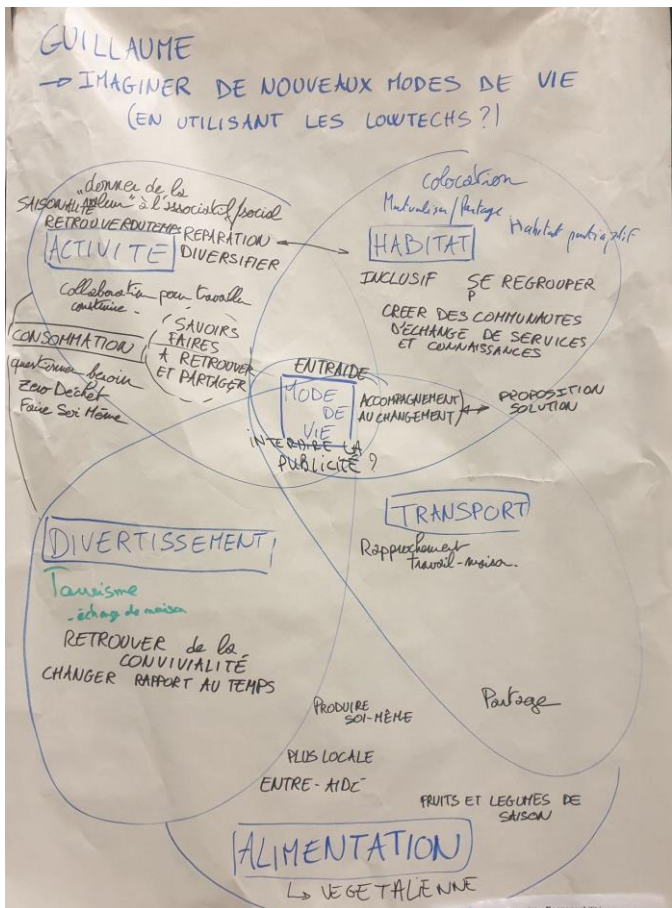 GUILLAUME
→ IMAGINER DE NOUVEAUX MODES DE VIE
(EN UTILISANT LES LOWTECHS ?)
"donner de la
valeur" à l'associatif/social
SAISONALITÉ
RETROUVER DU TEMPS
REPARATION
DIVERSIFIER
ACTIVITE
collaboration pour travailler
construire.
CONSOMMATION
questionner besoin
Zero Déchet
Faire Soi Même
SAVOIRS
FAIRES
A RETROUVER
ET PARTAGER
colocation
Mutualiser/Partage
Habitat participatif
HABITAT
INCLUSIF
SE REGROUPER
CREER DES COMMUNAUTES
D'ECHANGE DE SERVICES
ET CONNAISSANCES
ENTRAIDE
MODE
DE
VIE
ACCOMPAGNEMENT
AU CHANGEMENT
PROPOSITION
SOLUTION
INTERDIRE LA
PUBLICITÉ ?
TRANSPORT
Rapprochement
travail-maison.
Partage
DIVERTISSEMENT
Tourisme
- échange de maison
RETROUVER de la
CONVIVIALITÉ
CHANGER RAPPORT AU TEMPS
PRODUIRE
SOI-MÊME
PLUS LOCALE
ENTRE-AIDE
FRUITS ET LEGUMES DE
SAISON
ALIMENTATION
↳ VEGETALIENNE